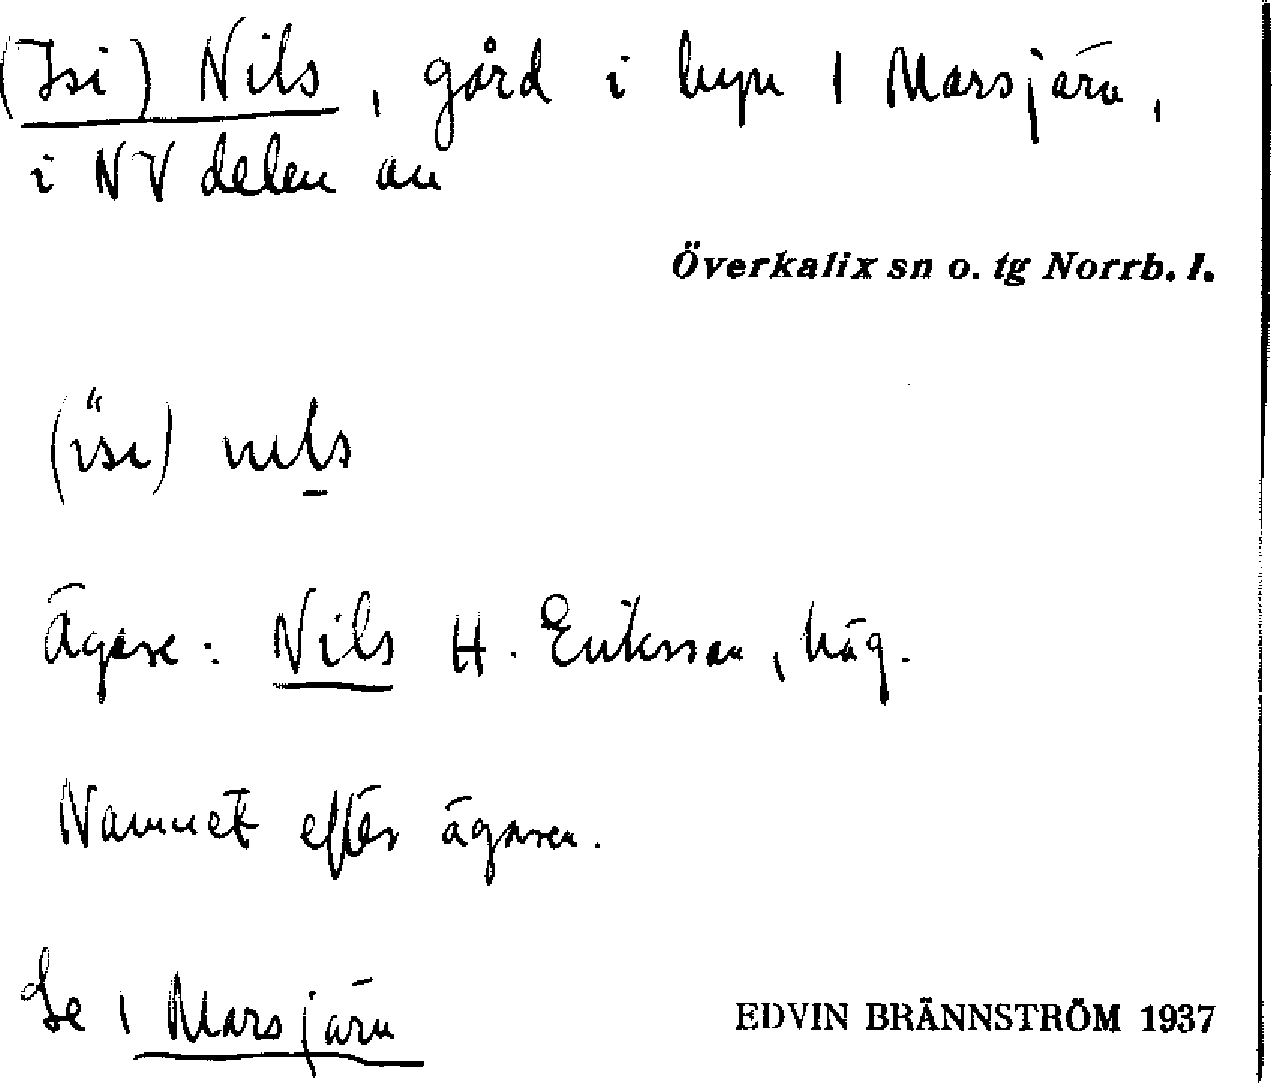 (Isi) Nils, gård i byn 1 Marsjärv,
i NV delen av
Överkalix sn o. tg Norrb. l.
(isi) nils
Ägare: Nils H. Eriksson, häg.
Namnet efter ägaren.
Se 1 Marsjärv
EDVIN BRÄNNSTRÖM 1937